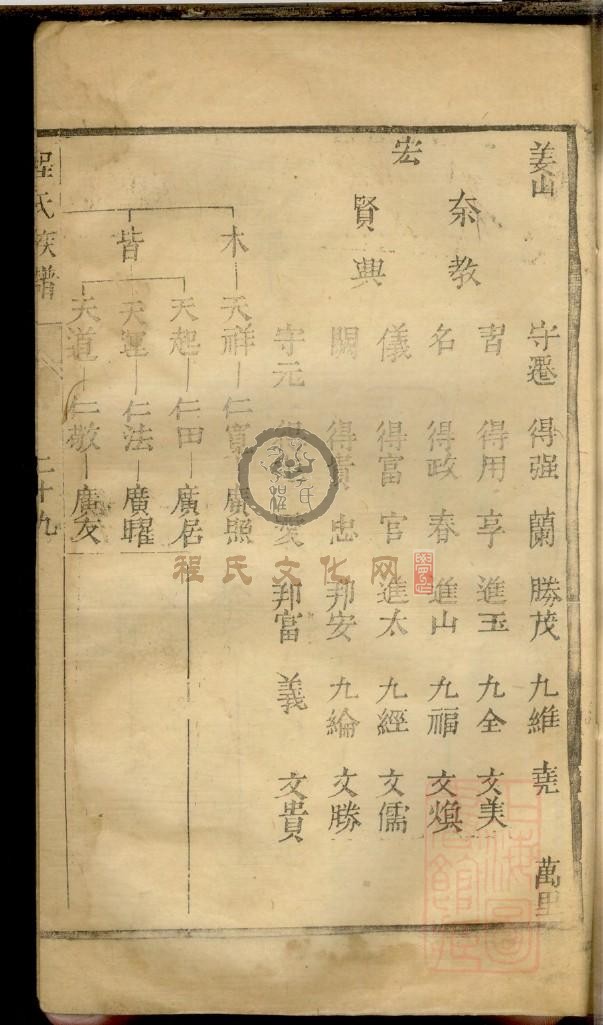 姜山
守遷 得强 蘭 勝茂 九維 堯 萬里
奈教
得用 享 進玉 九全 文美
名 得政 春 進山 九福 文煥
宏
儀 得富 官 進太 九經 文儒
賢興
闕 得貴 忠 邦安 九綸 文勝
守元 得愛 邦富 義 文貴
木 天祥 仁寬 廣照
天起 仁田 廣居
皆 天運 仁法 廣曜
天道 仁敬 廣友
程氏族譜
二十九
程氏文化网